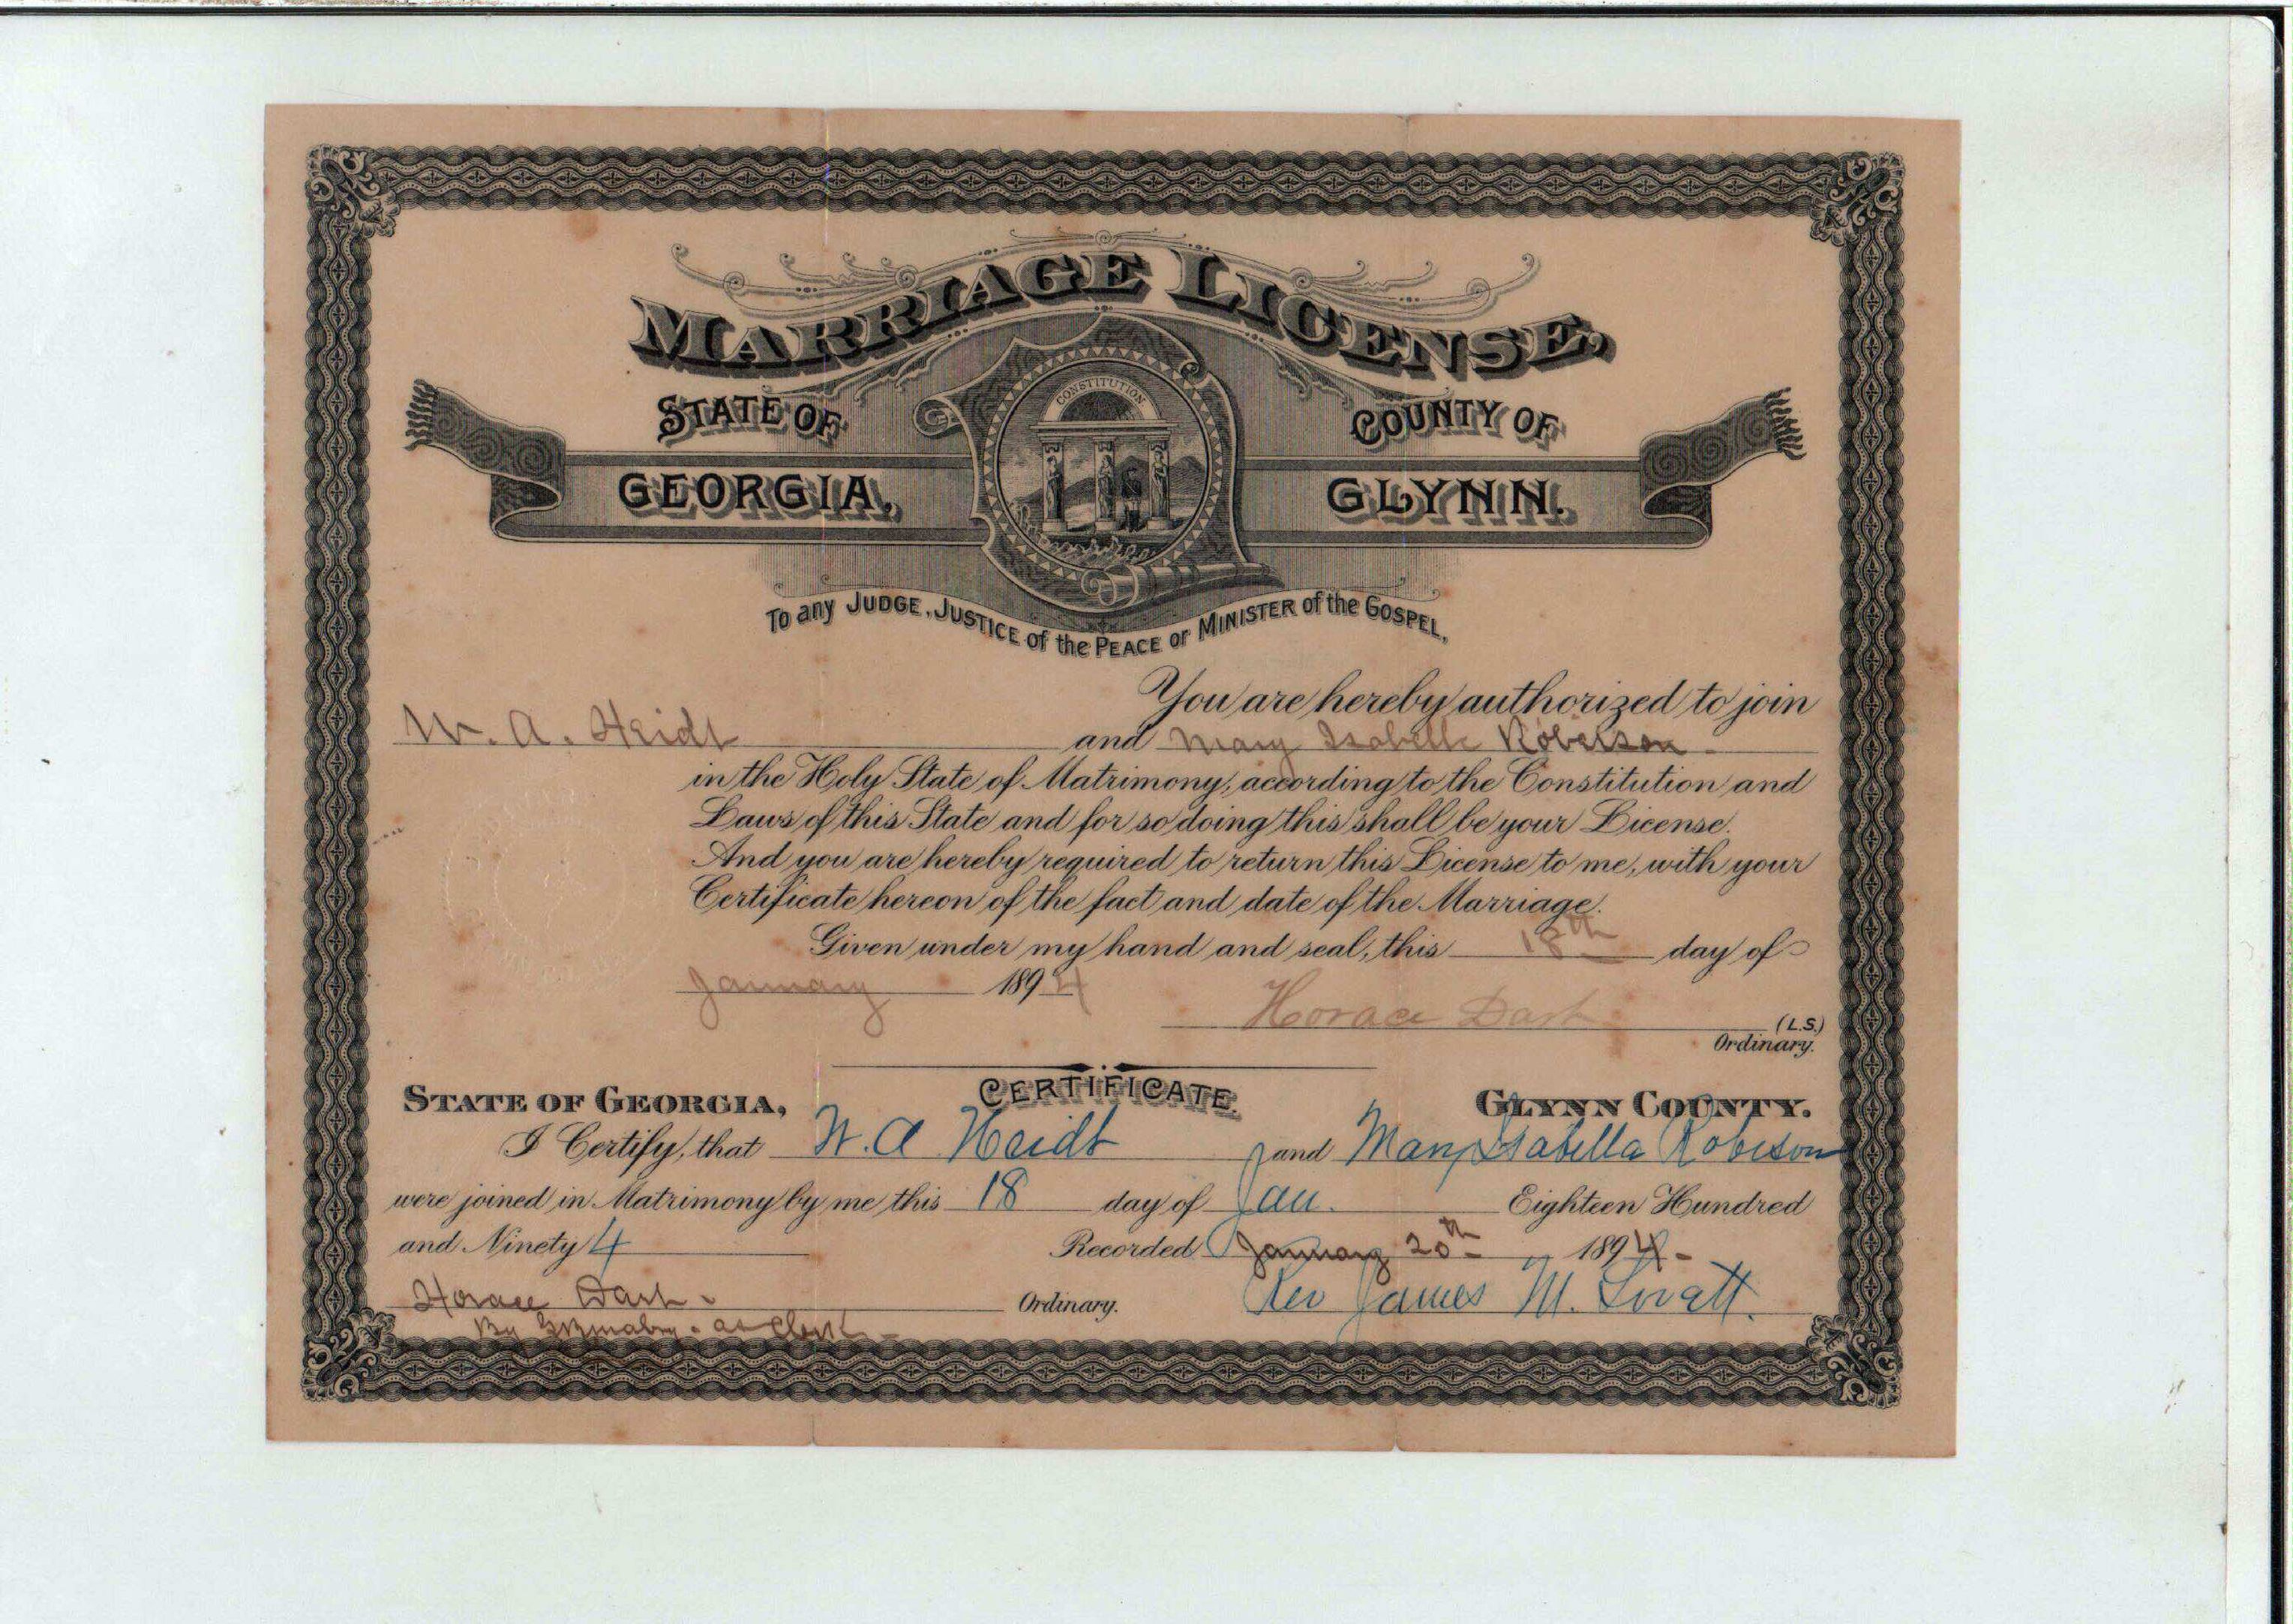 MARRIAGE LICENSE,
STATE OF COUNTY OF
CONSTITUTION
GEORGIA, GLYNN.
To any JUDGE, JUSTICE of the PEACE or MINISTER of the GOSPEL,
You are hereby authorized to join
W. A. Heidt and Mary Isabelle Roberson
in the Holy State of Matrimony, according to the Constitution and
Laws of this State and for so doing this shall be your License.
And you are hereby required to return this License to me, with your
Certificate hereon of the fact and date of the Marriage.
Given under my hand and seal, this 18th day of
January 1894
Horace Dart (L.S.)
Ordinary.
CERTIFICATE.
STATE OF GEORGIA, GLYNN COUNTY.
I Certify, that W. A Heidt and Mary Isabella Roberson
were joined in Matrimony by me this 18 day of Jan. Eighteen Hundred
and Ninety 4 Recorded January 20th 1894-
Horace Dart. Ordinary. Rev James M. Lovatt.
By as Clerk